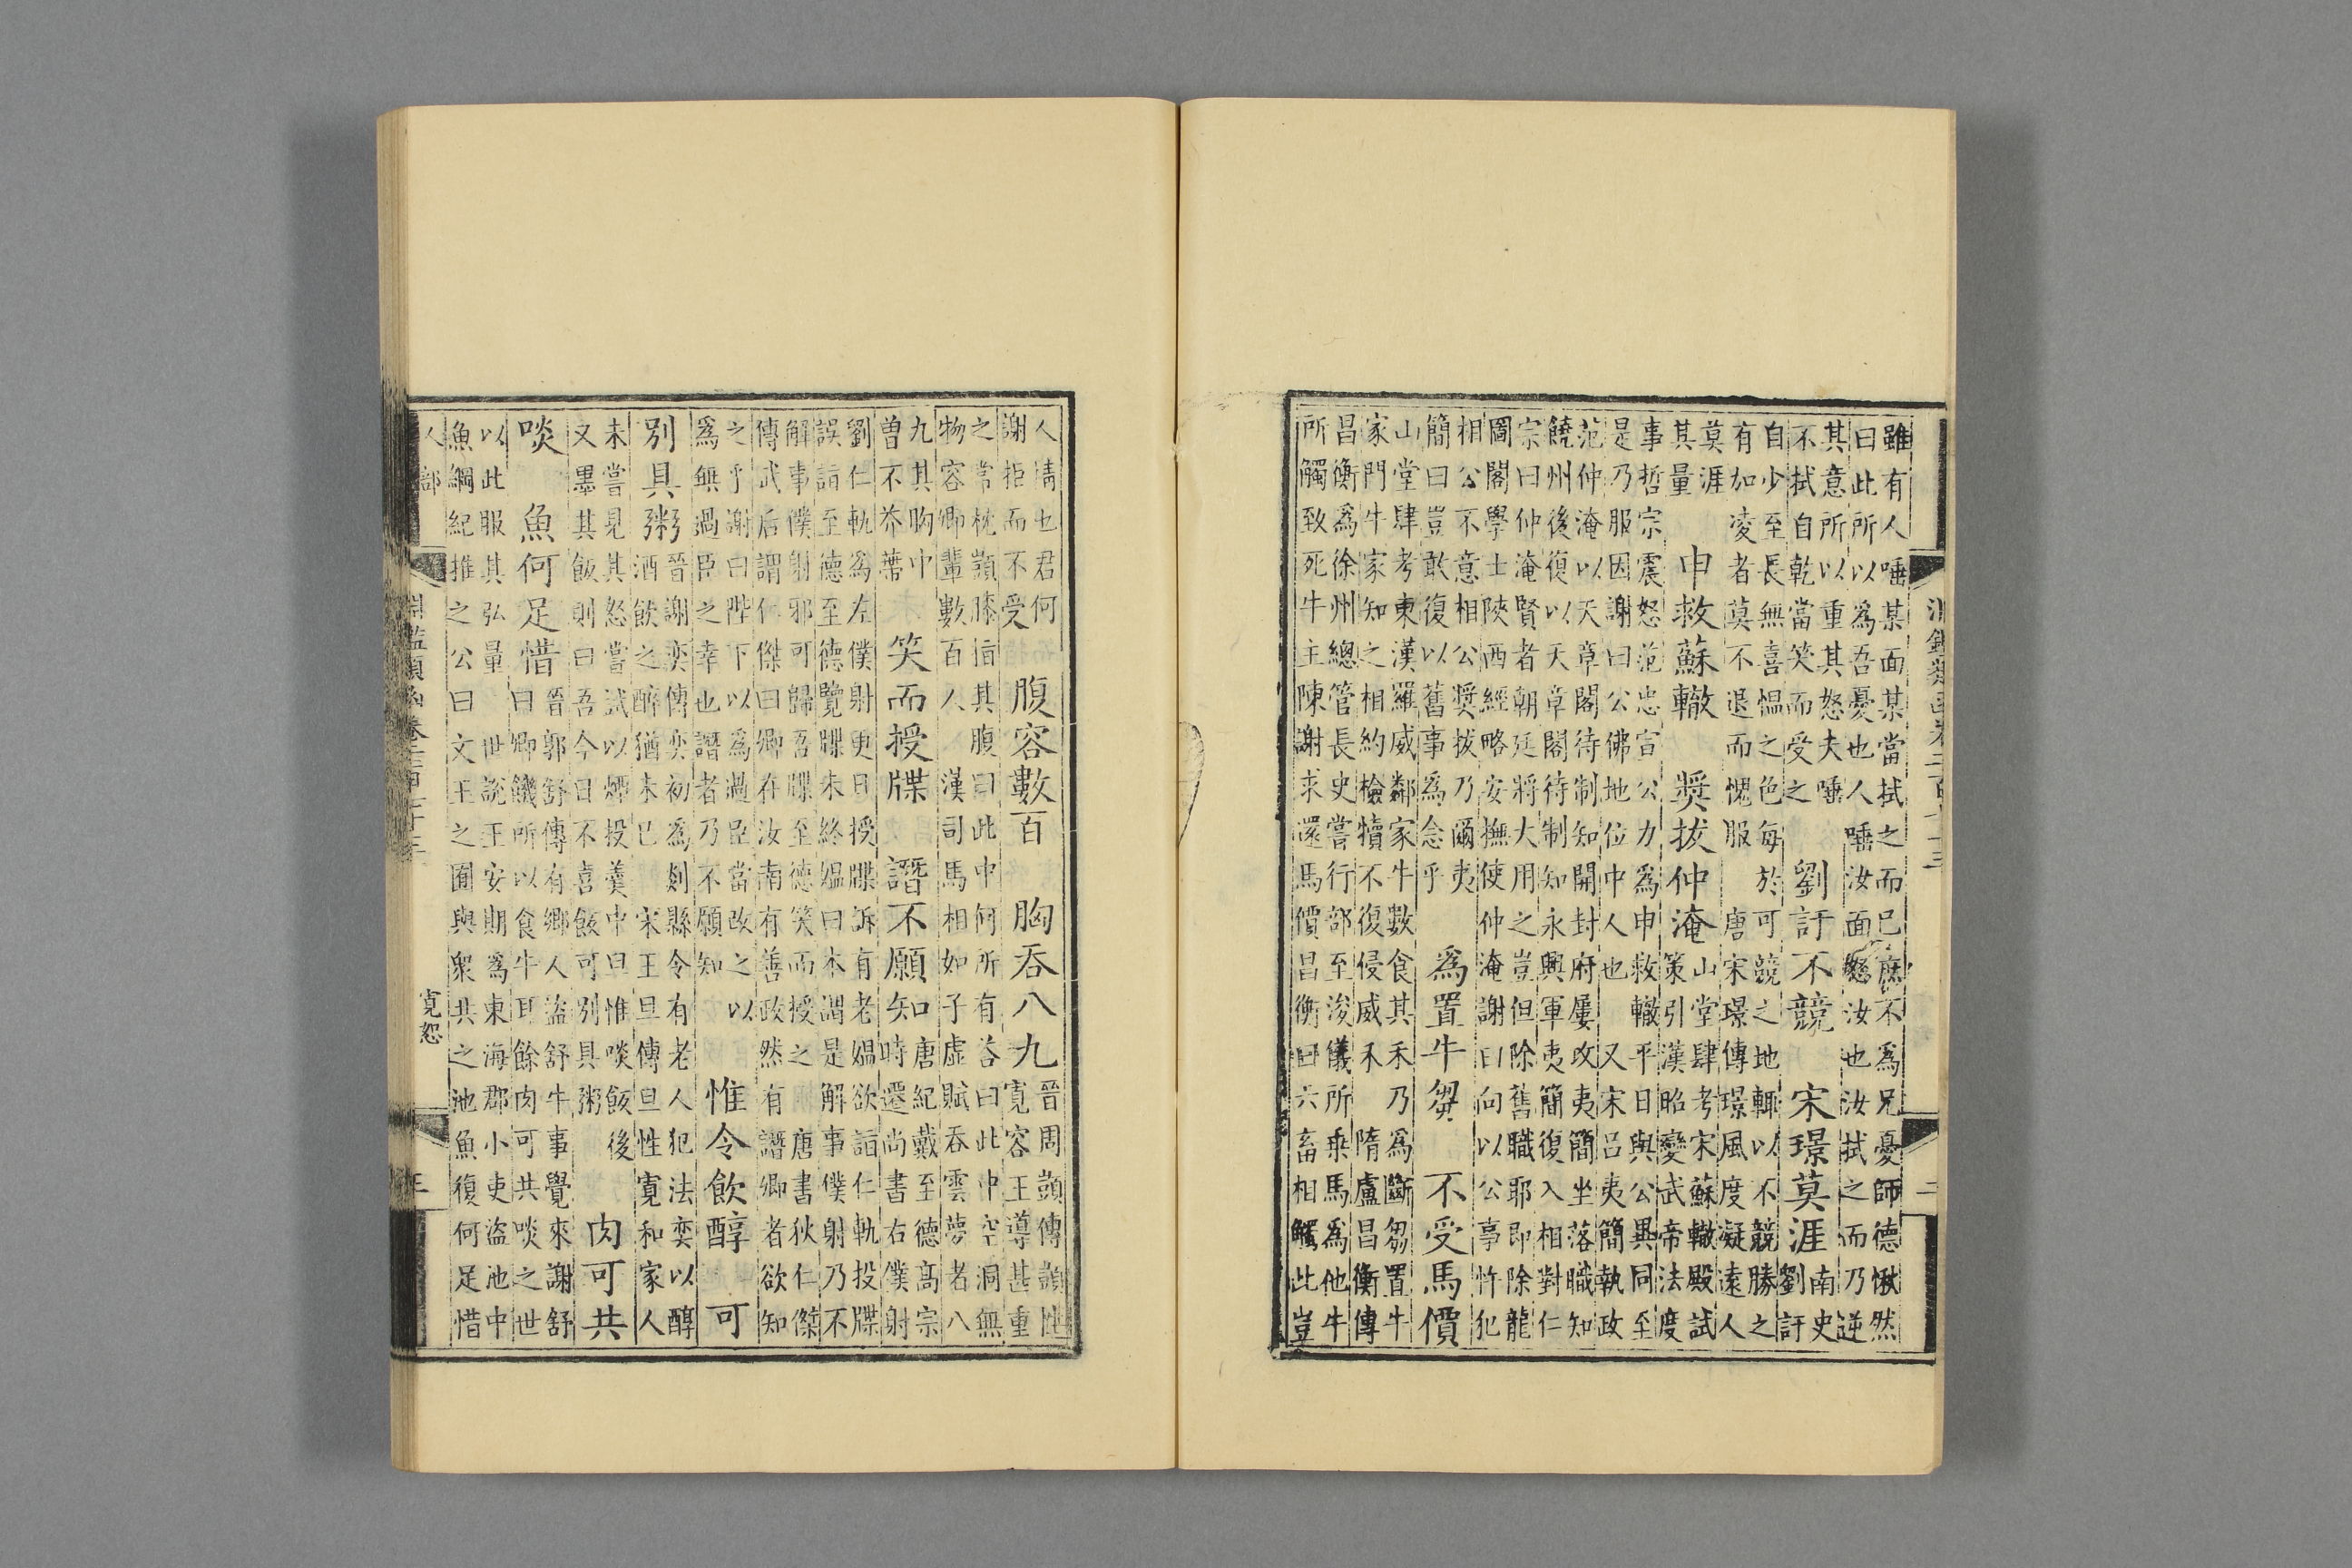 淵鑑類函卷二百七十三 二
雖有人唾某面某當拭之而已庶不爲兄憂師德愀然
曰此所以爲吾憂也人唾汝面怒汝也汝拭之而乃逆
其意所以重其怒夫唾
不拭自乾當笑而受之
劉訏不競 宋璟莫涯
南史
劉訏
自少至長無喜慍之色每於可競之地輒以不競勝之
有加凌者莫不退而愧服 唐宋璟傳璟風度凝遠人
莫涯
其量
申救蘇轍 獎拔仲淹
山堂肆考宋蘇轍殿試
策引漢昭變武帝法度
事哲宗震怒范忠宣公力爲申救轍平日與公異同至
是乃服因謝曰公佛地位中人也 又宋呂夷簡執政
范仲淹以天章閣待制知開封府屢攻夷簡坐落職知
饒州後復以天章閣待制知永興軍夷簡復入相對仁
宗曰仲淹賢者朝廷將大用之豈但除舊職耶即除龍
圖閣學士陝西經略安撫使仲淹謝曰向以公事忤犯
相公不意相公獎拔乃爾夷
簡曰豈敢復以舊事爲念乎
爲置牛芻 不受馬價
山堂肆考東漢羅威鄰家牛數食其禾乃爲斷芻置牛
家門牛家知之相約檢犢不復侵威禾 隋盧昌衡傳
昌衡爲徐州總管長史嘗行部至浚儀所乘馬爲他牛
所觸致死牛主陳謝求還馬價昌衡曰六畜相觸此豈
人情也君何
謝拒而不受
腹容數百 胸吞八九
晉周顗傳顗性
寬容王導甚重
之常枕顗膝指其腹曰此中何所有荅曰此中空洞無
物容卿輩數百人 漢司馬相如子虛賦吞雲夢者八
九其胸中
曾不芥蔕
笑而授牒 譖不願知
唐紀戴至德高宗
時遷尚書右僕射
劉仁軌爲左僕射更日授牒訴有老媼欲詣仁軌投牒
誤詣至德至德覽牒未終媼曰本謂是解事僕射乃不
解事僕射邪可歸吾牒至德笑而授之 唐書狄仁傑
傳武后謂仁傑曰卿在汝南有善政然有譖卿者欲知
之乎謝曰陛下以爲過臣當改之以
爲無過臣之幸也譖者乃不願知
惟令飲醇 可
別具粥
晉謝奕傳奕初爲剡縣令有老人犯法奕以醇
酒飲之醉猶未已 宋王旦傳旦性寬和家人
未嘗見其怒嘗試以煙投羹中旦惟啖飯後
又墨其飯則曰吾今日不喜飯可別具粥
肉可共
啖 魚何足惜
晉郭舒傳有鄉人盜舒牛事覺來謝舒
曰卿饑所以食牛耳餘肉可共啖之世
以此服其弘量 世說王安期爲東海郡小吏盜池中
魚綱紀推之公曰文王之囿與衆共之池魚復何足惜
人部 淵鑑類函卷二百七十三 寬恕 三